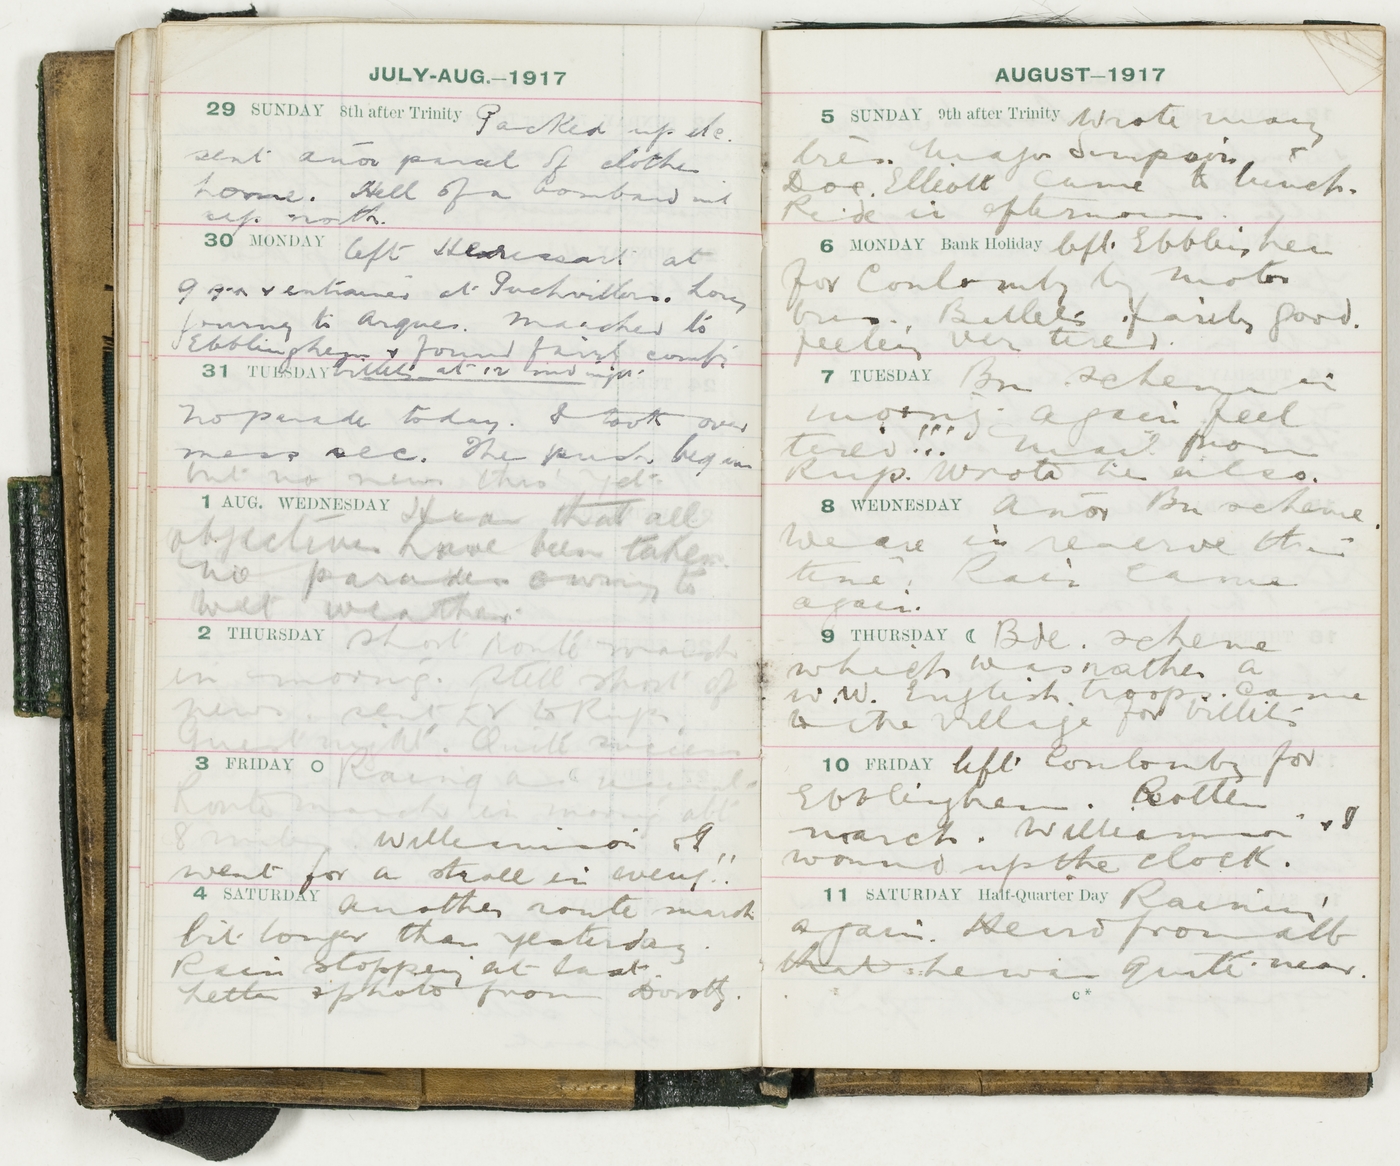 JULY-AUG.—1917
29 SUNDAY 8th after Trinity Packed up etc.
sent anor parcel of clothes
home. Hell of a bombard mt
up north.
30 MONDAY left Herissart at
9 & entrained at Puchvillers. Long
journey to Arques. Marched to
Ebblinghem & found fairly comf.
31 TUESDAY billets at 12 midnight.
No parade today. I took over
mess sec. The push begins
but no news thro yet.
1 AUG. WEDNESDAY Hear that all
objectives have been taken.
No parades owing to
wet weather.
2 THURSDAY short route march
in morning. Still short of
news. sent to Rup.
Guest night. Quite
3 FRIDAY Raining as usual.
Route march in morng abt
8 miles. Williamson & I
went for a stroll in eveng!!
4 SATURDAY another route march
bit longer than yesterday.
Rain stopping at last.
Letter & photo from Dorothy.
AUGUST—1917
5 SUNDAY 9th after Trinity Wrote many
ltrs. Major Simpson &
Dog. Elliott came to lunch.
Ride in afternoon.
6 MONDAY Bank Holiday left Ebblinghem
for Coulomby by motor
bus. Billets fairly good.
feeling very tired.
7 TUESDAY Bn scheme in
morng. again feel
tired!!! mail from
Rup. Wrote he also.
8 WEDNESDAY anor Bn scheme.
We are in reserve this
time. Rain came
again.
9 THURSDAY Bde. scheme
which was rather a
w.w. English troops came
to the village for billets
10 FRIDAY left Coulomby for
Ebblinghem. Rotten
march. Williamson & I
wound up the clock.
11 SATURDAY Half-Quarter Day Raining
again. Heard from alb
that he was quite near.
C*